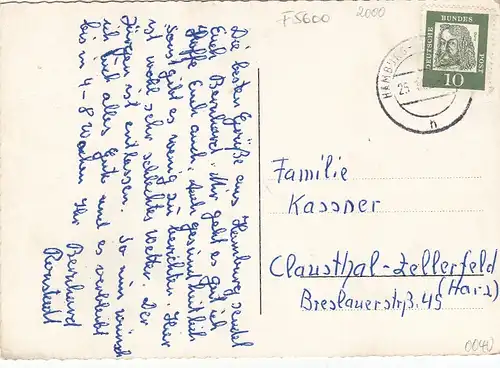 F5600
2000
DEUTSCHE BUNDES POST
10
HAMBURG
25
n
Die besten Grüße aus Hamburg sendet
Euch Bernhard. Mir geht es gut ich
hoffe Euch auch, auch gesundheitlich
Sonst gibt es wenig zu berichten. Hier
ist wohl sehr schlechtes Wetter. Der
Jürgen ist entlassen. So nun wünsch
ich Euch alles Gute und es verbleibt
bis in 4-8 Wochen Ihr
Bernhard
Ronstedt
Familie
Kassner
Clausthal-Zellerfeld
(Harz)
Breslauerstrß. 45